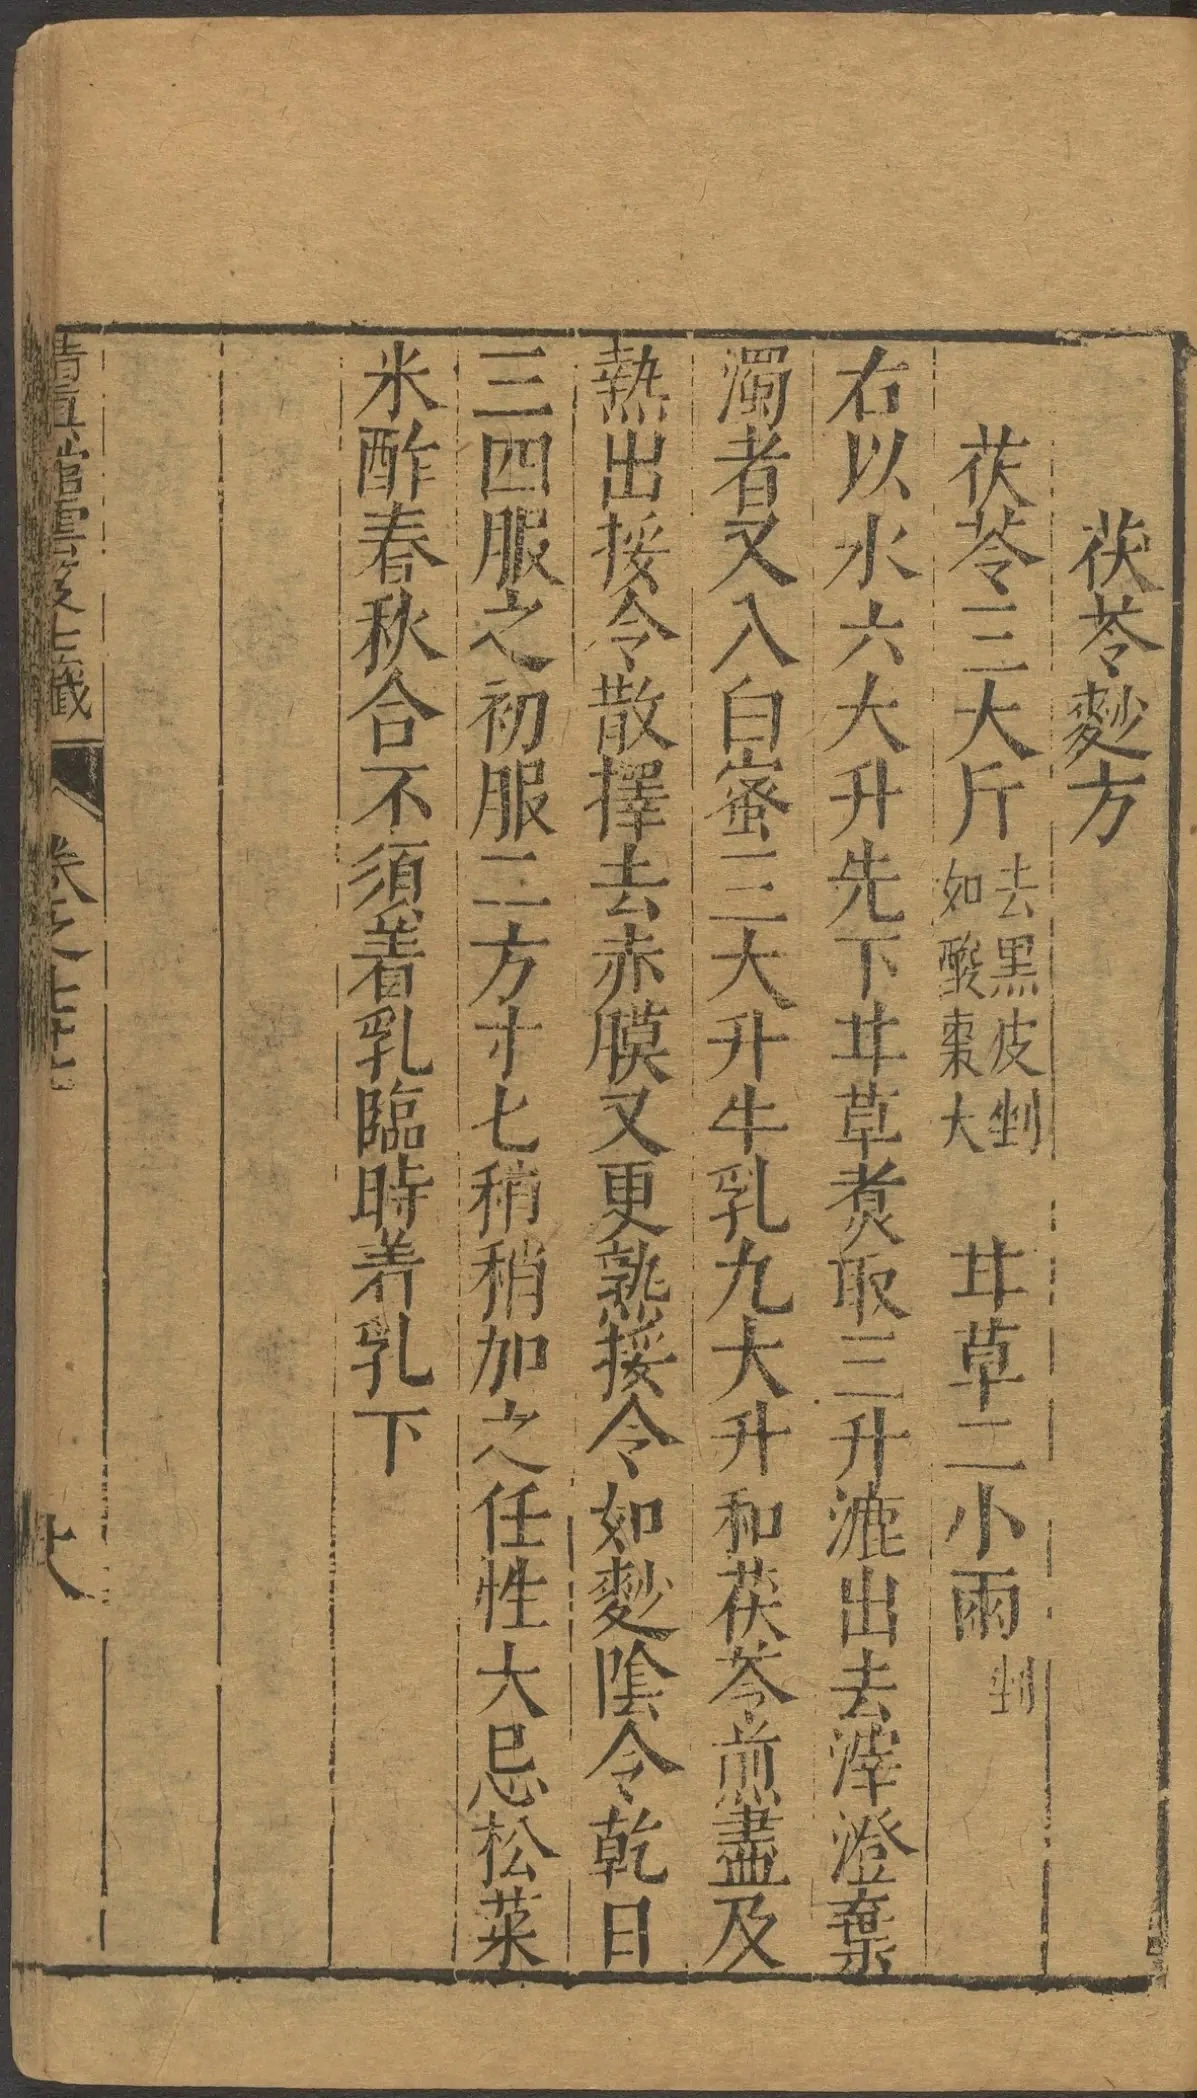 茯苓麨方
茯苓三大斤去黑皮剉如酸棗大 甘草二小兩剉
右以水六大升先下甘草煑取三升漉出去滓澄棄
濁者又入白蜜三大升牛乳九大升和茯苓煎盡及
熱出挼令散擇去赤膜又更熟挼令如麨陰令乾日
三四服之初服二方寸七稍稍加之任性大忌松菜
米酢春秋合不須着乳臨時着乳下
清真舘雲笈七籤 卷之七十七